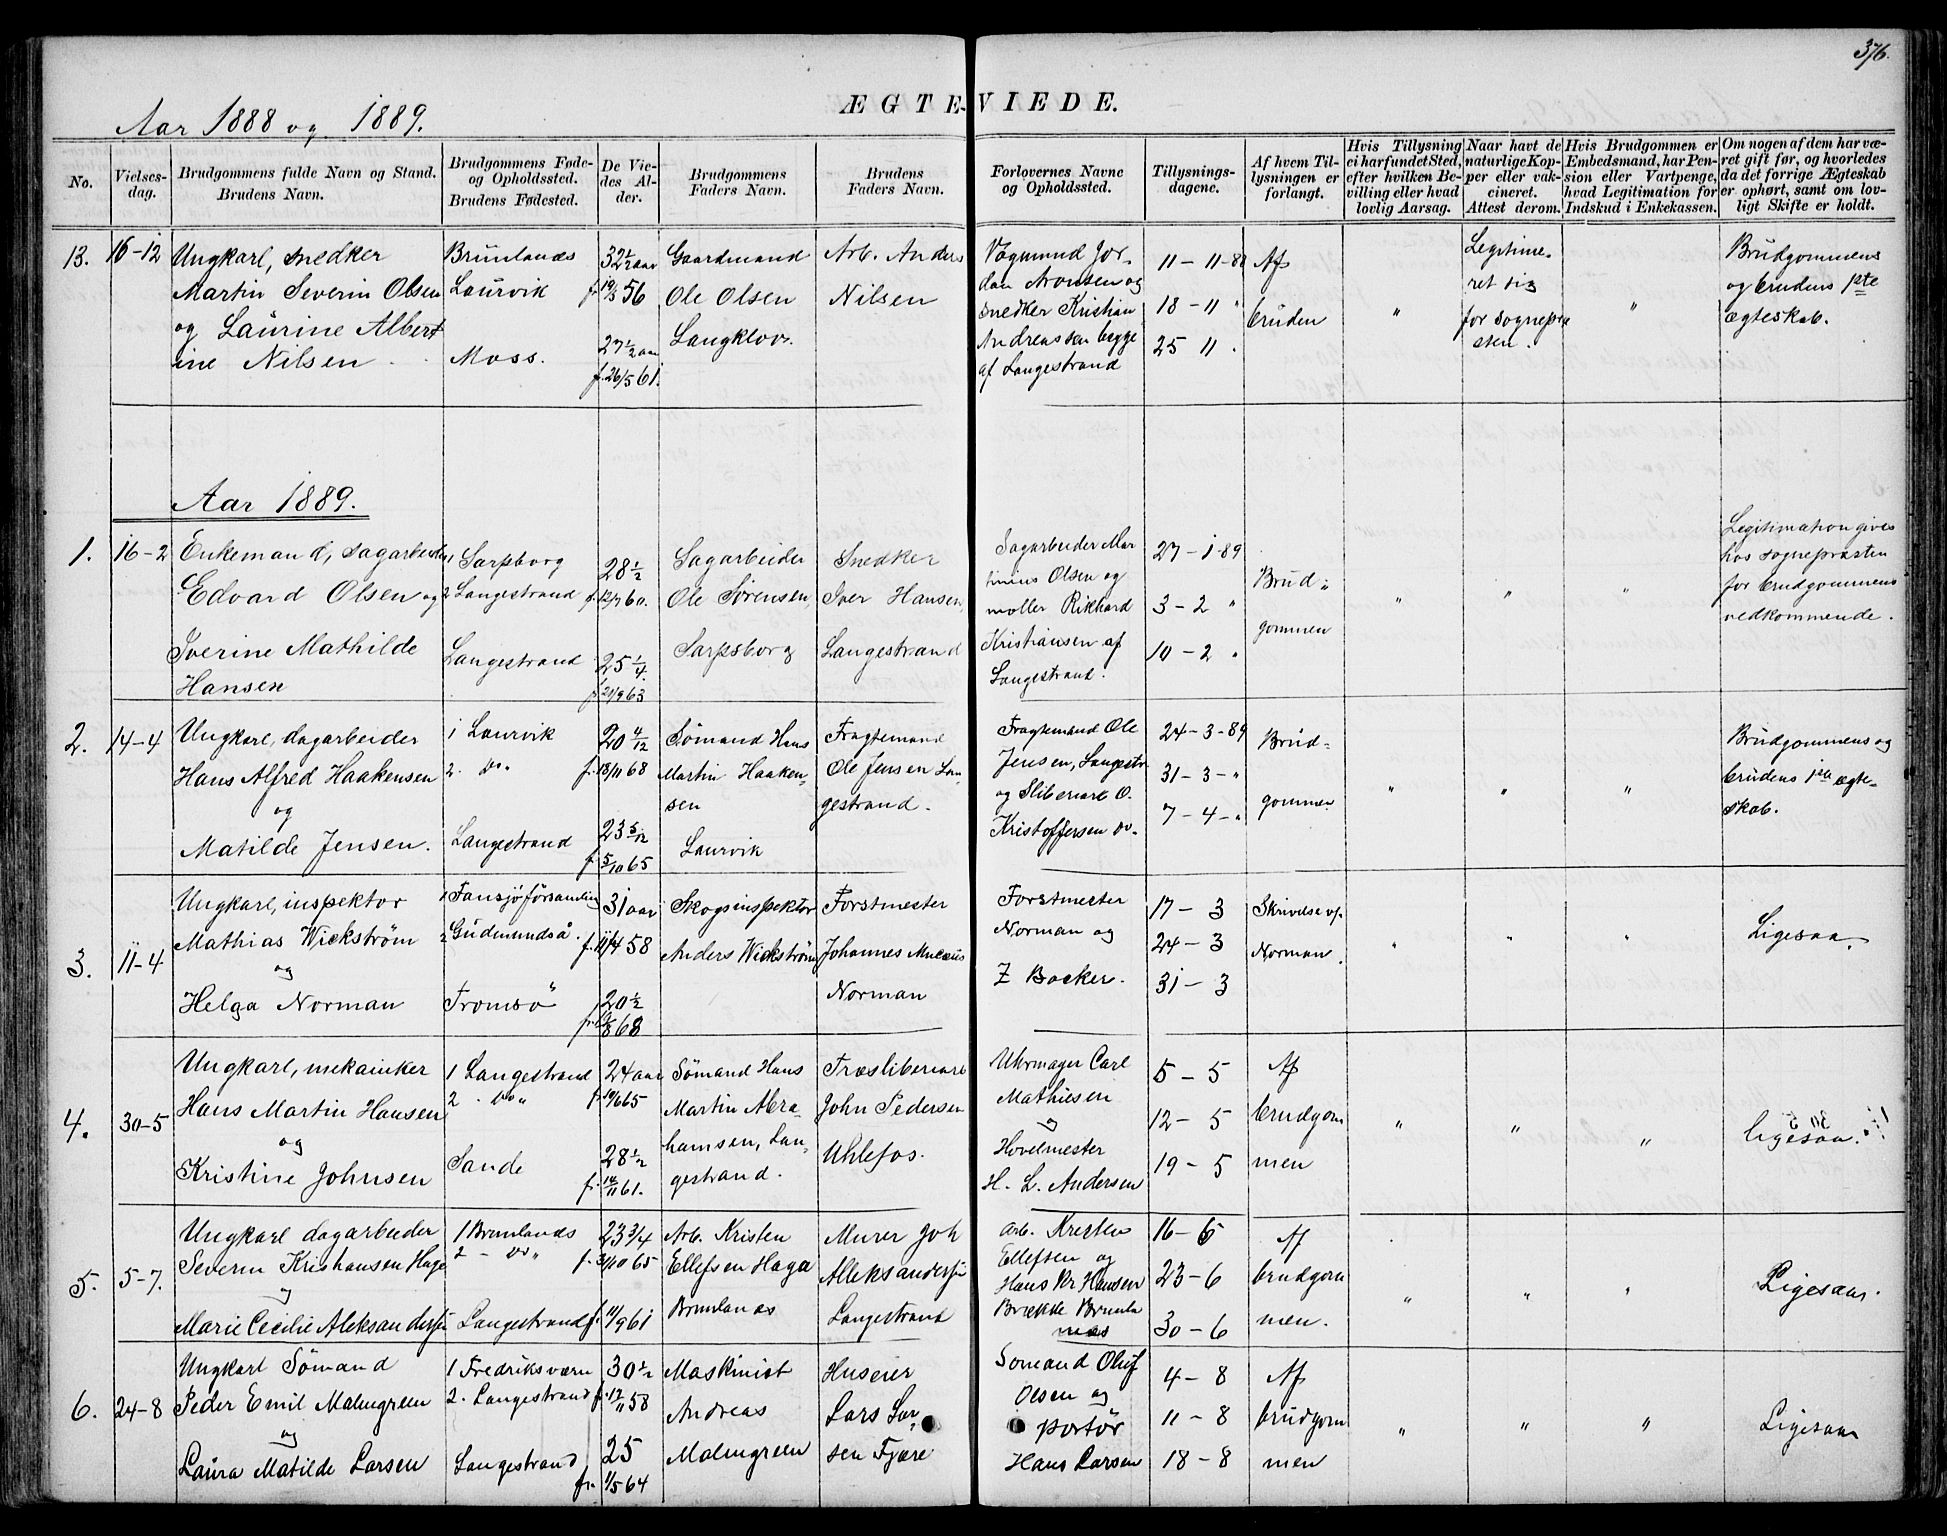 376.
Aar 1888 og 1889.
ÆGTEVIEDE.
No.
Vielsesdag.
Brudgommens fulde Navn og Stand.
Brudens Navn.
Brudgommens Føde-
og Opholdssted.
Brudens Fødested.
De Vie-
des Al-
der.
Brudgommens
Faders Navn.
Brudens
Faders Navn.
Forlovernes Navne
og Opholdssted.
Tillysnings-
dagene.
Af hvem Til-
lysningen er
forlangt.
Hvis Tillysning
ei har fundet Sted,
efter hvilken Be-
villing eller hvad
lovlig Aarsag.
Naar havt de
naturlige Kop-
per eller vak-
cineret.
Attest derom.
Hvis Brudgommen er
Embedsmand, har Pen-
sion eller Vartpenge,
hvad Legitimation for
Indskud i Enkekassen.
Om nogen af dem har væ-
ret gift før, og hvorledes
da det forrige Ægteskab
er ophørt, samt om lov-
ligt Skifte er holdt.
13.
16-12
Ungkarl, snedker
Martin Severin Olsen
og Laurine Albert
ine Nilsen
Brunlanæs
Laurvik
Moss.
32 1/2 aar
f. 19/3 56
27 1/2 aar
f. 26/5 61.
Gaardmand
Ole Olsen
Langklov.
Arb. Anders
Nilsen
Vognmand Jor-
dan Aronsen og
snedker Kristian
Andreassen begge
af Langestrand
11 - 11-88
18 - 11 "
25 11 .
Af
bruden
"
Legitime-
ret sig
for sognepræ
sten.
"
Brudgommens
og brudens 1ste
ægteskab.
Aar 1889.
1.
16-2
Enkemand, sagarbeider
Edvard Olsen og
Iverine Mathilde
Hansen
1 Sarpsborg
2 Langestrand
Langestrand
28 1/2
f. 12/7 60.
25 1/4
f. 21/9 63
Sagarbeider
Ole Sørensen,
Sarpsborg
Snedker
Iver Hansen,
Langestrand
Sagarbeider Mar
tinius Olsen og
møller Rikhard
Kristiansen af
Langestrand.
27 - 1-89
3 - 2 "
10 - 2 "
Brud-
gommen
"
"
"
Legitimation gives
hos sognepræsten
for brudgommens
vedkommende.
2.
14-4
Ungkarl, dagarbeider
Hans Alfred Haakensen
og
Matilde Jensen.
1 Laurvik
2. do "
Langestrand
20 4/12
f. 18/11 68
23 5/12
f. 5/10 65
Sømand Hans
Martin Haaken-
sen
Laurvik
Fragtemand
Ole Jensen Lan-
gestrand.
Fragtemand Ole
Jensen, Langestr
og Sliberiarb O.
Kristoffersen do.
24-3-89
31-3-"
7-4-"
Brud-
gommen
"
"
"
Brudgommens og
brudens 1ste ægte-
skab.
3.
11-4
Ungkarl, inspektor
Mathias Wickstrøm
og
Helga Norman
1 Tansjö församling
2 Gudmundså.
Tromsö
31 aar
f. 11/4 58
20 1/2
68
Skogsinspektor
Anders Wickstrøm
Forstmester
Johannes
Norman
Forstmester
Norman og
Z Backer.
17 - 3
24 - 3
31 - 3
Skrivelse af
Norman.
"
"
"
Ligesaa.
4.
30-5
Ungkarl, mekaniker
Hans Martin Hansen
og
Kristine Johnsen
1 Langestrand
2 . do "
Sande
24 aar
f. 19/6 65
28 1/2
f. 14/11 61.
Sømand Hans
Martin Abra-
hamsen, Lan-
gestrand.
Træsliberiarb
John Pedersen
Uhlefos.
Uhrmager Carl
Mathiesen
og
Høvelmester
H. L. Andersen
5 - 5
12 - 5
19 - 5
Af
brudgom
men
"
"
"
ligesaa.
5.
5-7.
Ungkarl dagarbeider
Severin Kristiansen Haga
og
Marie Cecilie Aleksandersen
1 Brunlanæs
2 - do "
Langestrand
23 3/4
f. 31/10 65
f. 11/9 61
Arb. Kristen
Ellefsen Haga
Brunlanæs
Murer Joh
Aleksandersen
Langestrand
Arb. Kresten
Ellefsen og
Hans Kr Hansen
Brække Brunla
næs
16-6
23-6
30-6
Af
brudgom
men.
"
"
"
Ligesaa.
6.
24-8
Ungkarl Sømand
Peder Emil Malmgreen
og
Laura Matilde Larsen
1 Fredriksværn
2. Langestrand
Langestrand
30 1/2
f. 12/11 58
25
f. 1/5 64
Maskinist
Andreas
Malmgreen
Huseier
Lars Lar-
sen Fjære
Sømand Oluf
Olsen og
Portør
Hans Larsen
4 - 8
11 - 8
18 - 8
Af
brudgom
men
"
"
"
Ligesaa